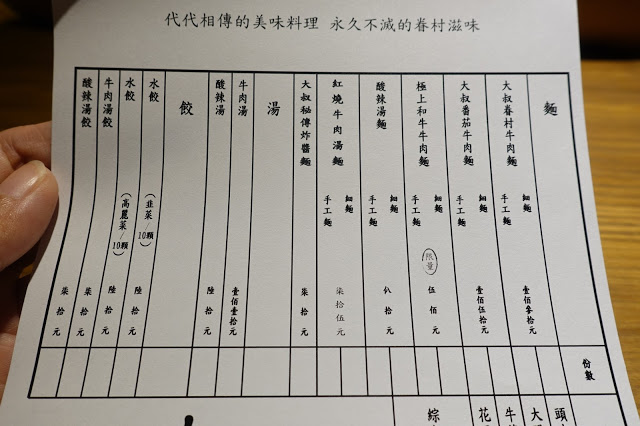 代代相傳的美味料理 永久不滅的眷村滋味
麵
份數
大叔眷村牛肉麵 細麵 手工麵 壹佰參拾元
大叔番茄牛肉麵 細麵 手工麵 壹佰伍拾元
極上和牛牛肉麵 細麵 手工麵 限量 伍佰元
酸辣湯麵 細麵 手工麵 仈拾元
紅燒牛肉湯麵 細麵 手工麵 柒拾伍元
大叔秘傳炸醬麵 柒拾元
湯
牛肉湯 壹佰壹拾元
酸辣湯 陸拾元
餃
水餃 (韭菜/10顆) 陸拾元
水餃 (高麗菜/10顆) 陸拾元
牛肉湯餃 柒拾元
酸辣湯餃 柒拾元
頭
大
牛
花
綜